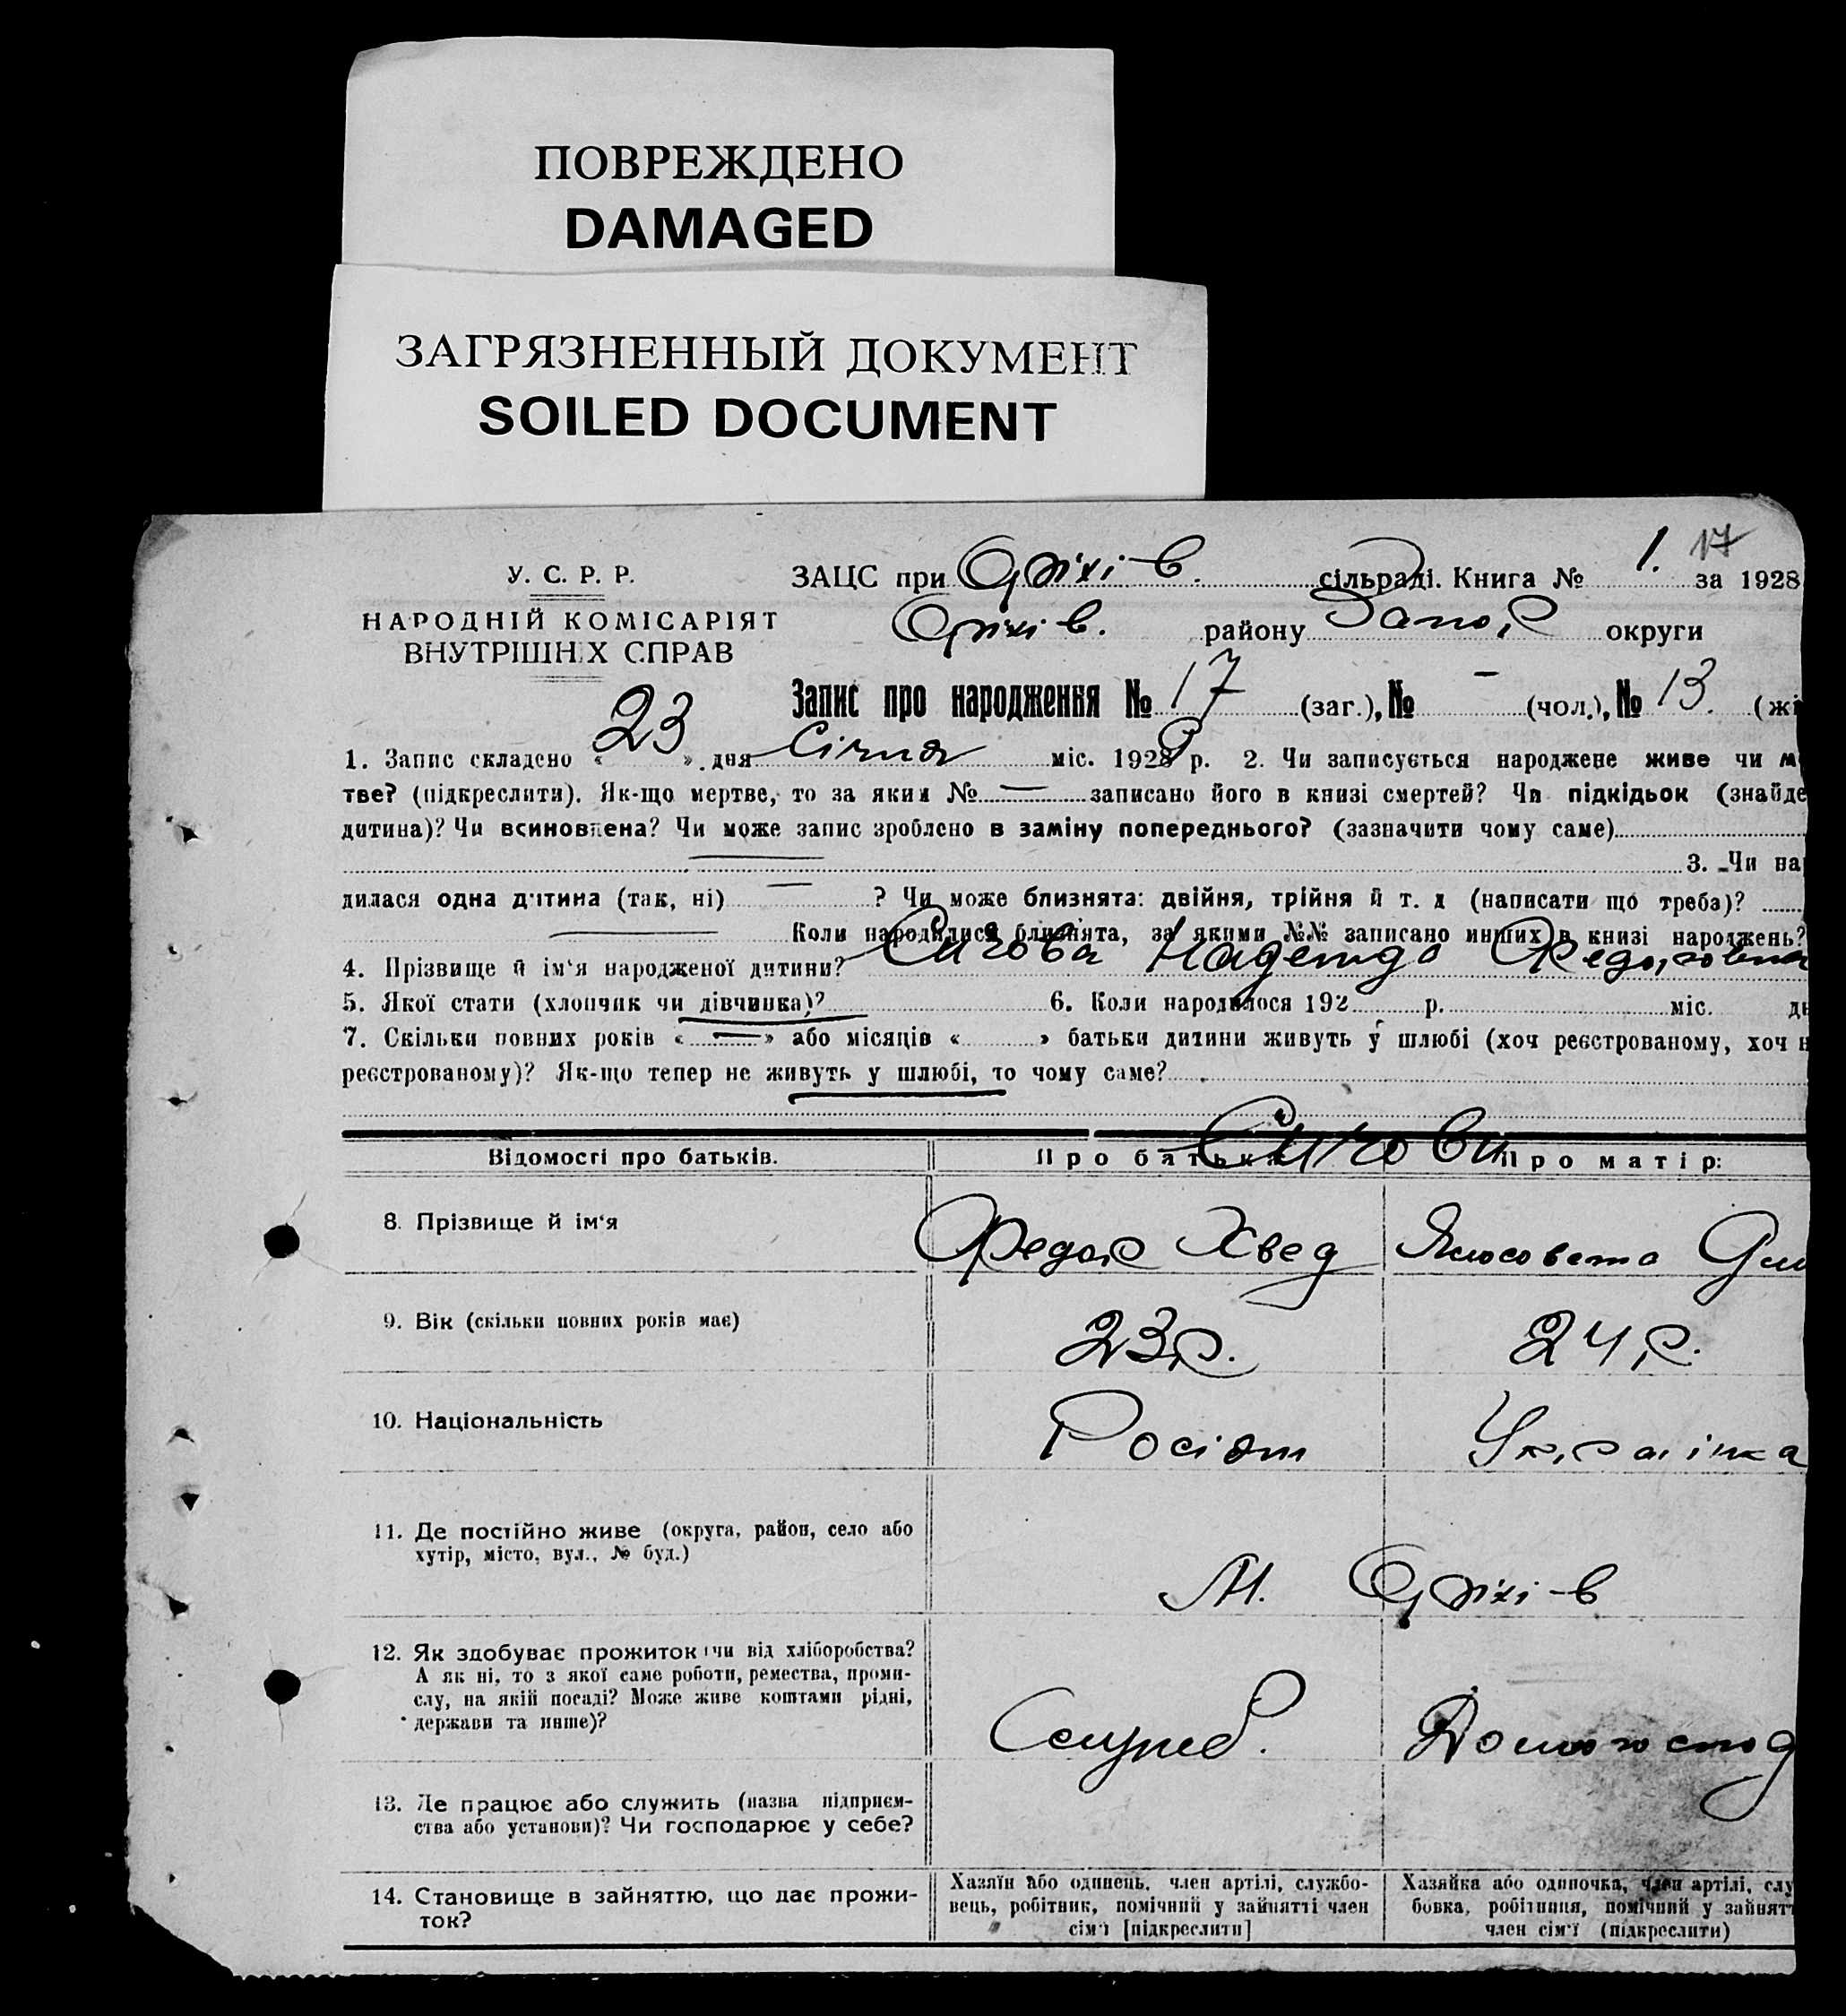 ПОВРЕЖДЕНО
DAMAGED
ЗАГРЯЗНЕННЫЙ ДОКУМЕНТ
SOILED DOCUMENT
1. 17
У. С. Р. Р.
НАРОДНІЙ КОМІСАРІЯТ
ВНУТРІШНІХ СПРАВ
ЗАЦС при Оріхів. сільраді. Книга № 1. за 1928
Оріхів. району Запор округи
Запис про народження № 17 (заг.), № – (чол.), № 13. (жі
1. Запис складено « 23 » дня Січня міс. 1928 р. 2. Чи записується народжене живе чи м
тве? (підкреслити). Як-що мертве, то за яким № — записано його в книзі смертей? Чи підкідьок (знайде
дитина)? Чи всиновлена? Чи може запис зроблено в заміну попереднього? (зазначити чому саме)
— 3. Чи на
дилася одна дитина (так, ні) — ? Чи може близнята: двійня, трійня й т. д (написати що треба)?
— Коли народилися близнята, за якими №№ записано инших в книзі народжень?
4. Прізвище й ім'я народженої дитини? Сичова Надежда Федоровна
5. Якої стати (хлопчик чи дівчинка)? 6. Коли народилося 192 р. міс. дн
7. Скільки повних років « — » або місяців « » батьки дитини живуть у шлюбі (хоч реєстрованому, хоч н
реєстрованому)? Як-що тепер не живуть у шлюбі, то чому саме?
Відомості про батьків. Про батька Про матір:
Сичови
8. Прізвище й ім'я Федор Хвед
9. Вік (скільки повних років має) 23 р. 24 р.
10. Національність Росіян Українка
11. Де постійно живе (округа, район, село або
хутір, місто, вул., № буд.) М. Оріхів
12. Як здобуває прожиток чи від хліборобства?
А як ні, то з якої саме роботи, ремества, проми-
слу, на якій посаді? Може живе коштами рідні,
держави та инше)? Служб. Домогоспод
13. Де працює або служить (назва підприєм-
ства або установи)? Чи господарює у себе?
14. Становище в зайняттю, що дає прожи-
ток?
Хазяїн або одинець, член артілі, службо-
вець, робітник, помічний у зайнятті член
сім'ї [підкреслити]
Хазяйка або одиночка, член артілі, слу
бовка, робітниця, помічний у зайнят
член сім'ї (підкреслити)